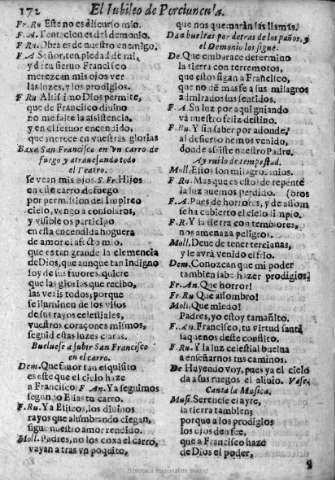 172 El Iubileo de Porciuncula.
Fr. Ru Este no es discurso mio.
F. A. Tentacion es del demonio.
F. Ru. Obra es de nuestro enemigo.
F. A Señor, ten piedad de mi,
y de tu sieruo Francisco
merezcan mis ojos ver
las luzes, y los prodigios.
F Ru Altissimo Dios permite,
que de Francisco diuino
no me falte la assistencia,
y en esse fuor encendido,
que merece en vuestras glorias
Baxa San Francisco en vn carro de
fuego y atrauessando todo
el Teatro.
se vean mis ojos. S. Fr. Hijos
en este carro de fuego
por permission del Impireo
cielo, vengo a consolaros,
y visible os participo
en esta encendida hoguera
de amor el afecto mio,
que es tan grande la clemencia
de Dios, que aunque tan indigno
soy de sus fauores, quiere
que las glorias que recibo,
las veais todos, porque
se iluminen de los visos
de sus rayos celestiales,
vuestros coraçones mismos,
seguid estas luzes claras.
Buelase a subir San Francisco
en el carro.
Dem. Que fauor tan esquisito
es este que el cielo haze
a Francisco! F. An. Ya seguimos
segun ao Elias tu carro.
F. Ru. Ya Eliseos, los diuinos
rayos que alumbrando ciegan,
sigue nuestro amor rendido.
Moll. Padres, no los coxa el carro,
vayan a tras vn poquito,
que nos quemaràn las llamas.
Dan bueltas por detras de los paños, y
el Demonio los sigue.
De. Que embarace determino
la tierra con terremotos
que estos sigan a Francisco,
que no dè masse a sus milagros
admirados sus sentidos.
F. A Su luz por aqui guiando
và nuestro feliz destino.
F. Ru. Y sin saber por adonde,
al desierto hemos venido,
donde assiste nuestro Padre.
Ay ruido de tempestad.
Moll. Estos son milagros mios.
F. Ru. Mas que es esto? de repente
la luz huemos perdido. (bros
F. A. Pues de horrores, y de assom
se ha cubierto el cielo limpio.
F. R. Y la tierra con temblores,
nos amenaza peligros.
Moll. Deue de tener tercianas,
y le avrà venido el frio.
Dem. Conozcan que mi poder
tambien sabe hazer prodigios
Fr. An. Que horror!
Fr Ru Que assombro!
Moll. Que miedo!
Padres, yo estoy tamañito.
F. An. Francisco, tu virtud santa
saquenos deste conflicto.
F. Ru. Y la luz celestial buelua
a enseñarnos tus caminos.
De Huyendo voy, pues ya el cielo
da a sus ruegos el aliuio. Vase.
Canta la Musica.
Musi. Serenese el ayre,
la tierra tambien,
porque a los prodigios
los ojos den fee,
que a Francisco haze
de Dios el poder,
Biblioteca Regional de Madrid